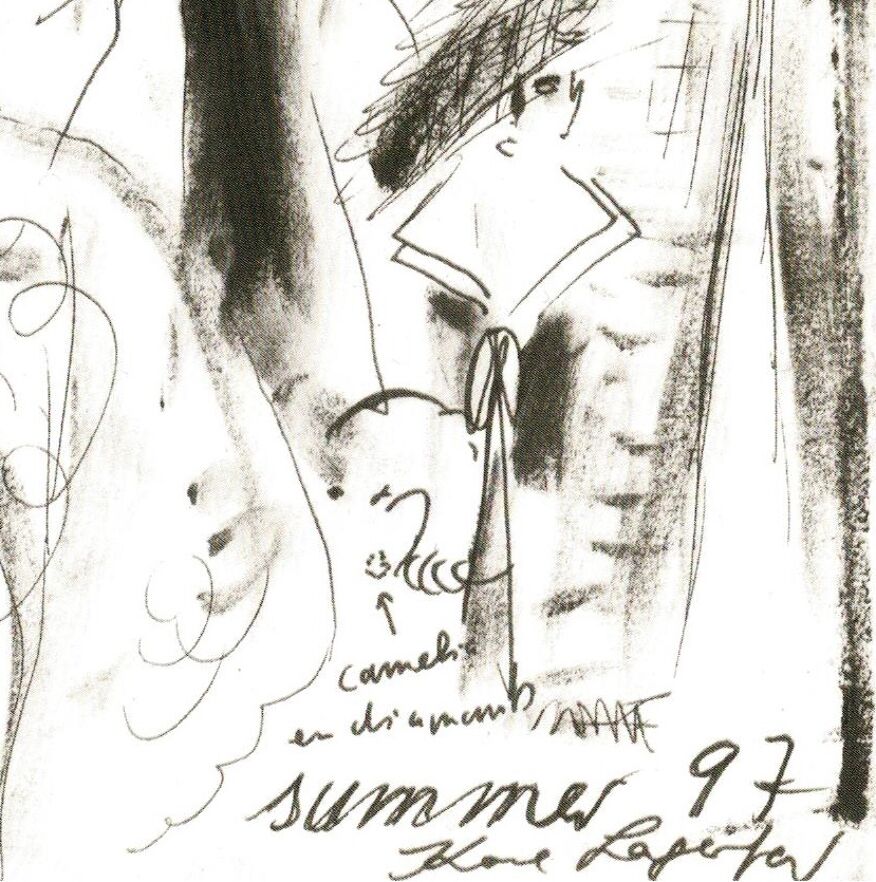 camelia
en diamants
summer 97
Karl Lagerfeld